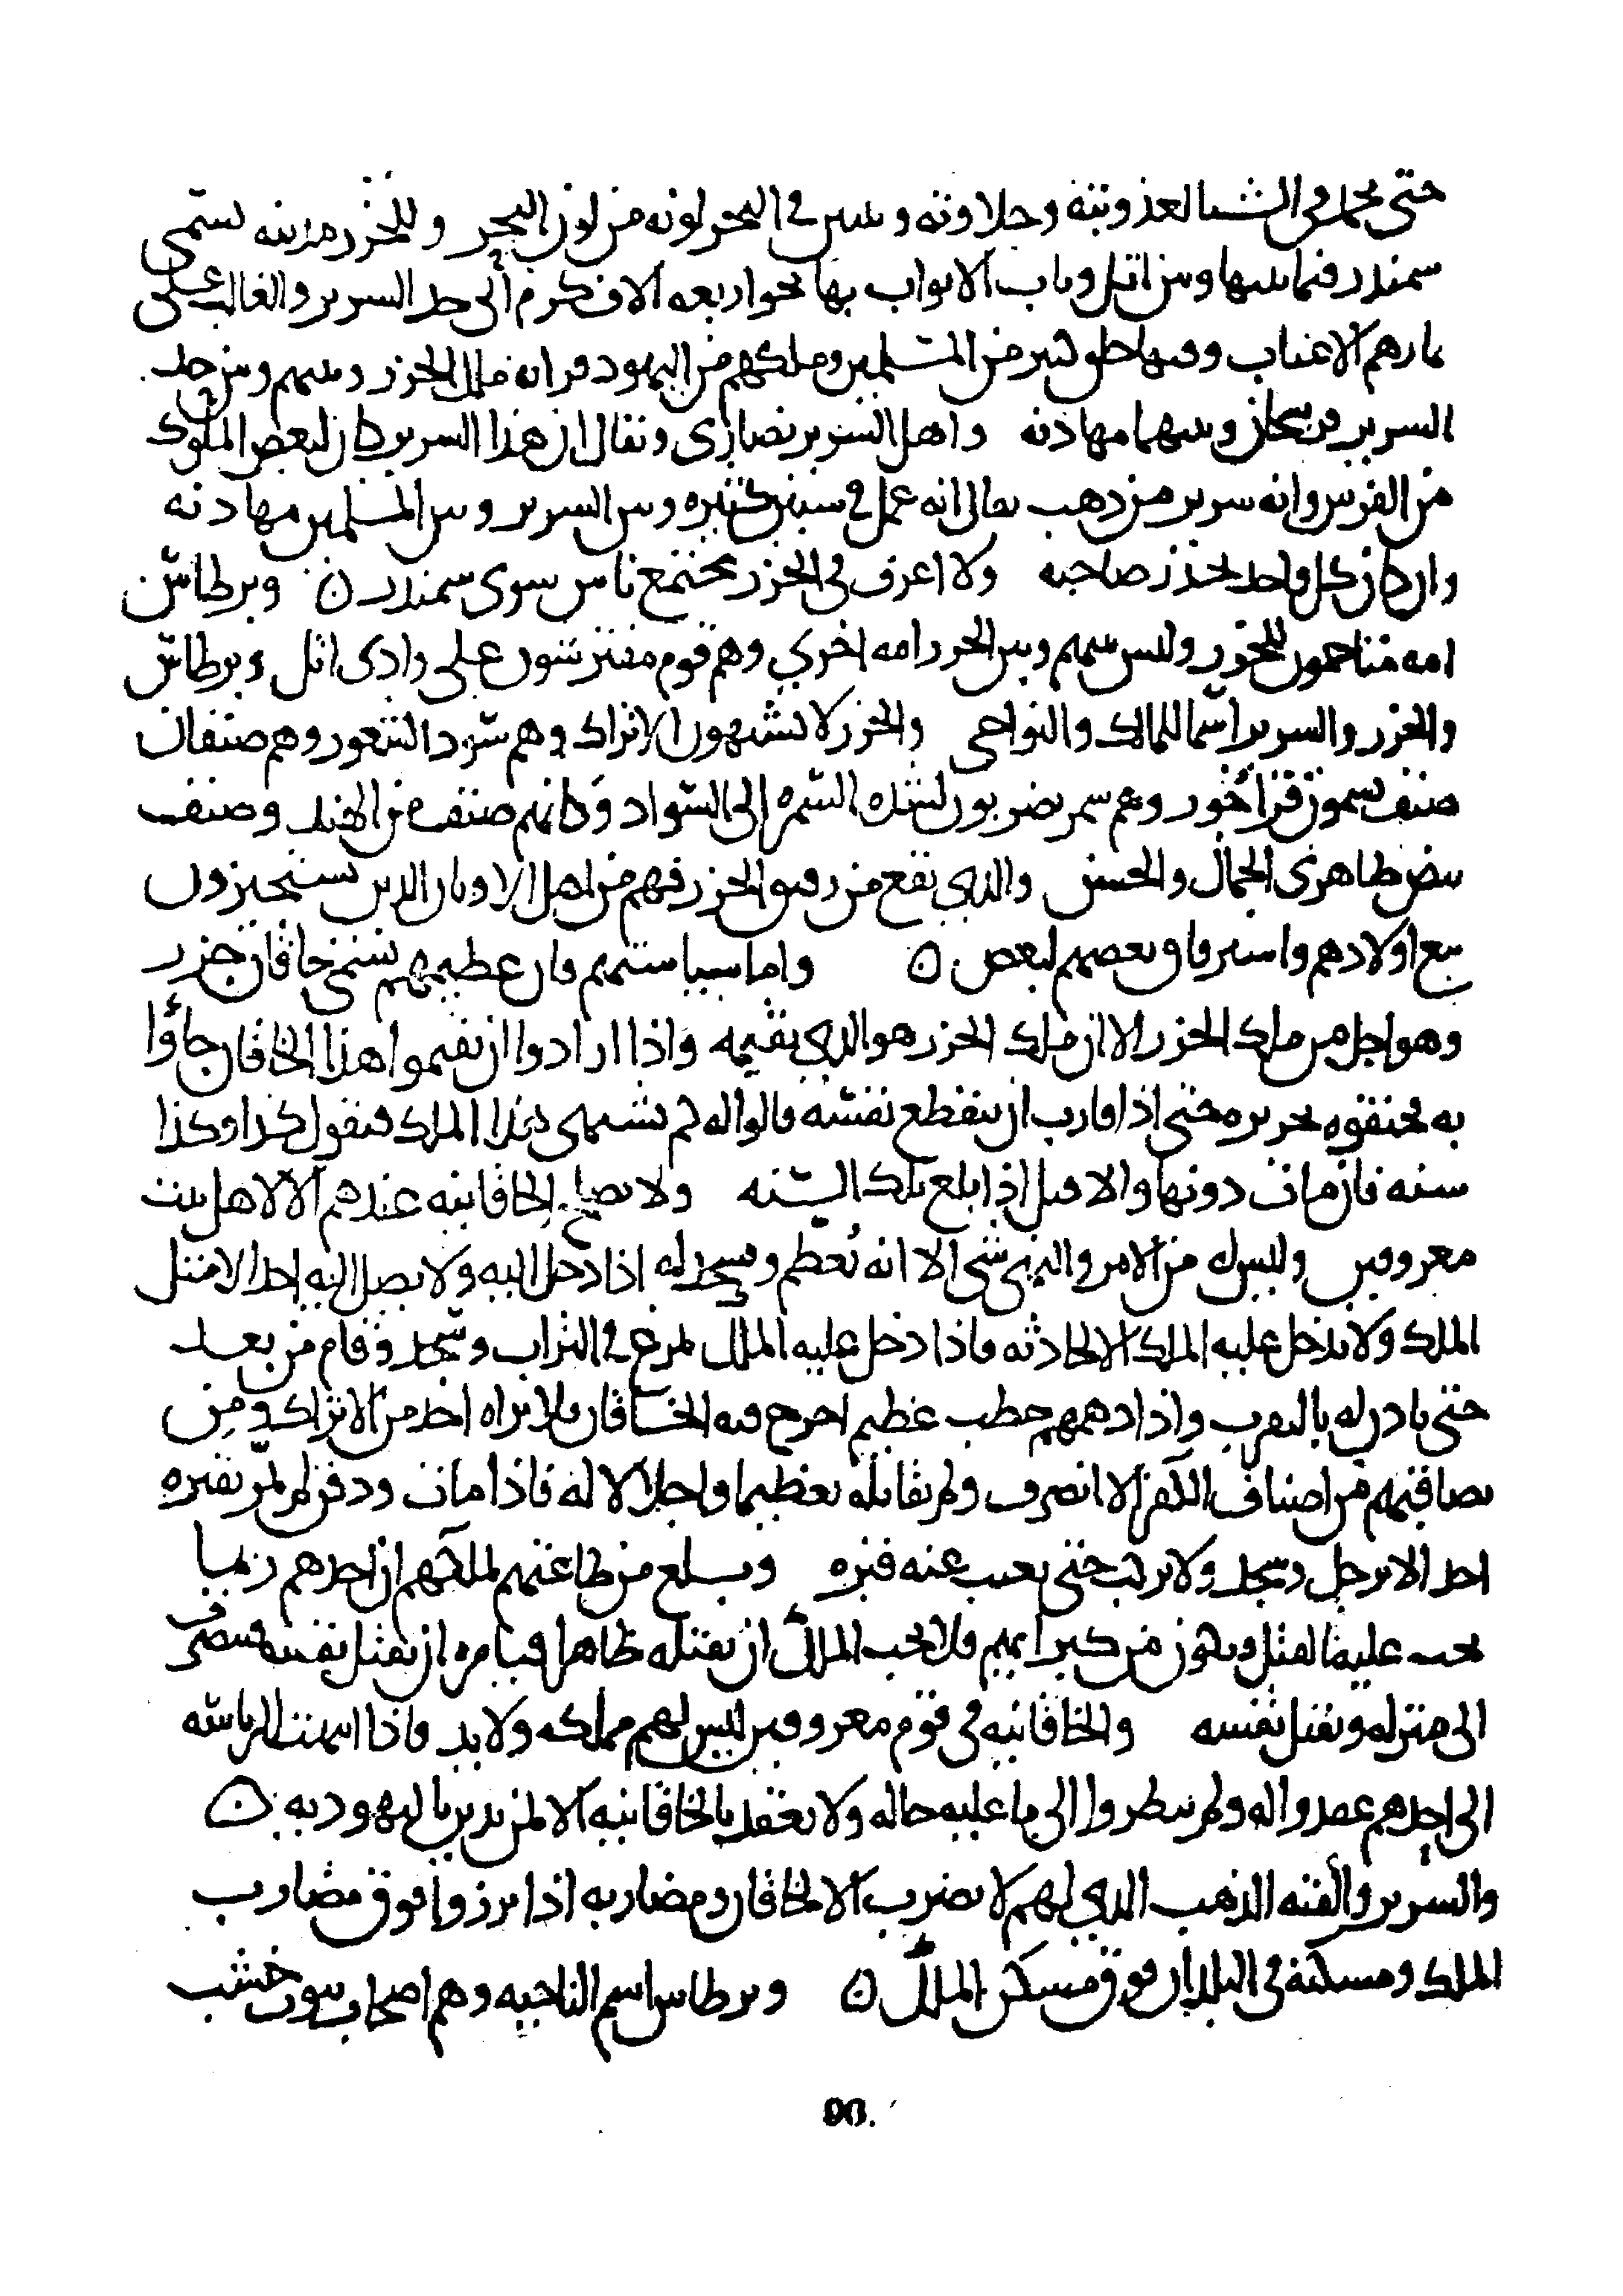 حتى يجمد في الشتا لعذوبته وحلاوته ويبين في البحر لونه من لون البحر وللخزر مدينه تسمى
سمندر فيما بينها وبين اتل وباب الابواب بها نحو اربعه الاف كرم الى حد السرير والغالب على
ثمارهم الاعناب وفيها خلق كثير من المسلمين وملكهم من اليهود قرابه ملك الخزر وبينهم وبين حد
السرير فرسخان وبينهما مهادنه واهل السرير نصارى ويقال ان هذا السرير كان لبعض الملوك
من الفرس وانه سرير من ذهب يقال انه عمل في سنين كثيره وبين السرير وبين المسلمين مهادنه
وان كان كل واحد يحذر صاحبه ولا اعرف في الخزر مجتمع ناس سوى سمندر ن وبرطاس
امه متاخمون للخزر وليس بينهم وبين الخزر امه اخرى وهم قوم مفترشون على وادى اتل وبرطاس
والخزر والسرير اسما للمالك والنواحى والخزر لا يشبهون الاتراك وهم سود الشعور وهم صنفان
صنف يسمون قراخزر وهم سمر يضربون لشده السمره الى السواد وكانهم صنف من الهند وصنف
بيض ظاهرى الجمال والحسن والذي يقع من رقيق الخزر فهم من اهل الاوثان الذين يستجيزون
بيع اولادهم واسترقاق بعضهم لبعض ن واما سياستهم فان عظيمهم يسمى خاقان خزر
وهو اجل من ملك الخزر الا ان ملك الخزر هو الذي يقيمه واذا ارادوا ان يقيموا هذا الخاقان جاؤا
به فيخنقوه بحريره حتى اذا قارب ان ينقطع نفسه قالوا له كم تشتهى مده الملك فيقول كذا وكذا
سنه فان مات دونها والا قتل اذا بلغ تلك السنه ولا تصلح الخاقانيه عندهم الا لاهل بيت
معروفين وليس له من الامر والنهى شى الا انه يعظم ويسجد له اذا دخل اليه ولا يصل اليه احد الا مثل
الملك ولا يدخل عليه الملك الا لحادثه فاذا دخل عليه الملك تمرغ في التراب وسجد وقام من بعد
حتى ياذن له بالتقرب واذا دهمهم خطب عظيم اخرج فيه الخاقان فلا يراه احد من الاتراك ومن
يصاقبهم من اصناف الكفر الا انصرف ولم يقاتله تعظيما واجلالا له فاذا مات ودفن لم يمر بقبره
احد الا ترجل وسجد ولا يركب حتى يغيب عنه قبره ويبلغ من طاعتهم لملكهم ان احدهم ربما
يجب عليه القتل ويكون من كبرايهم فلا يحب الملك ان يقتله ظاهرا فيامره ان يقتل نفسه فينصرف
الى منزله ويقتل نفسه والخاقانيه في قوم معروفين ليس لهم مملكه ولا يد فاذا انتهت الرياسه
الى احدهم عقدوا له ولم ينظروا الى ما عليه حاله ولا يعقد بالخاقانيه الا لمن يدين باليهوديه ن
والسرير والقبه الذهب الذي لهم لا يضرب الا لخاقان ومضاربه اذا برزوا فوق مضارب
الملك ومسكنه في البلدان فوق مسكن الملك ن وبرطاس اسم الناحيه وهم اصحاب بيوت خشب
90.